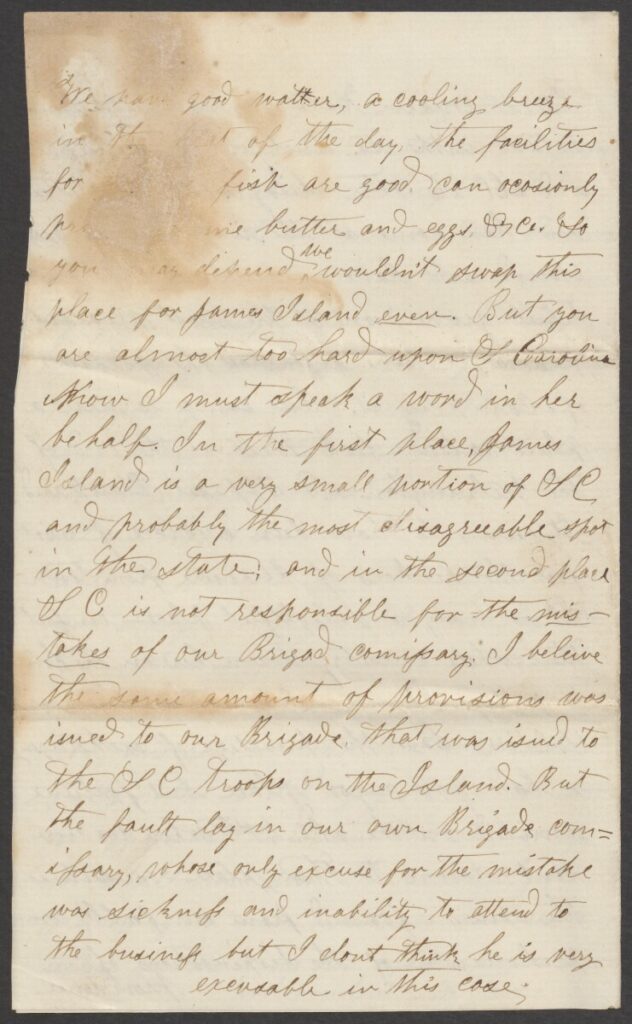 We have good watter, a cooling breeze
in the of the day, the facilities
for fish are good, can ocasionly
butter and eggs, &ce. So
you may depend we wouldn't swap this
place for James Island even. But you
are almost too hard upon S Carolina
Know I must speak a word in her
behalf. In the first place, James
Island is a very small portion of S C
and probably the most disagreeable spot
in the state; and in the second place
S C is not responsible for the mis-
takes of our Brigad comissary. I beleive
the same amount of provisions was
isued to our Brigade, that was isued to
the S C troops on the Island. But
the fault lay in our own Brigade com=
issary, whose only excuse for the mistake
was sickness and inability to attend to
the business but I dont think he is very
excusable in this case;